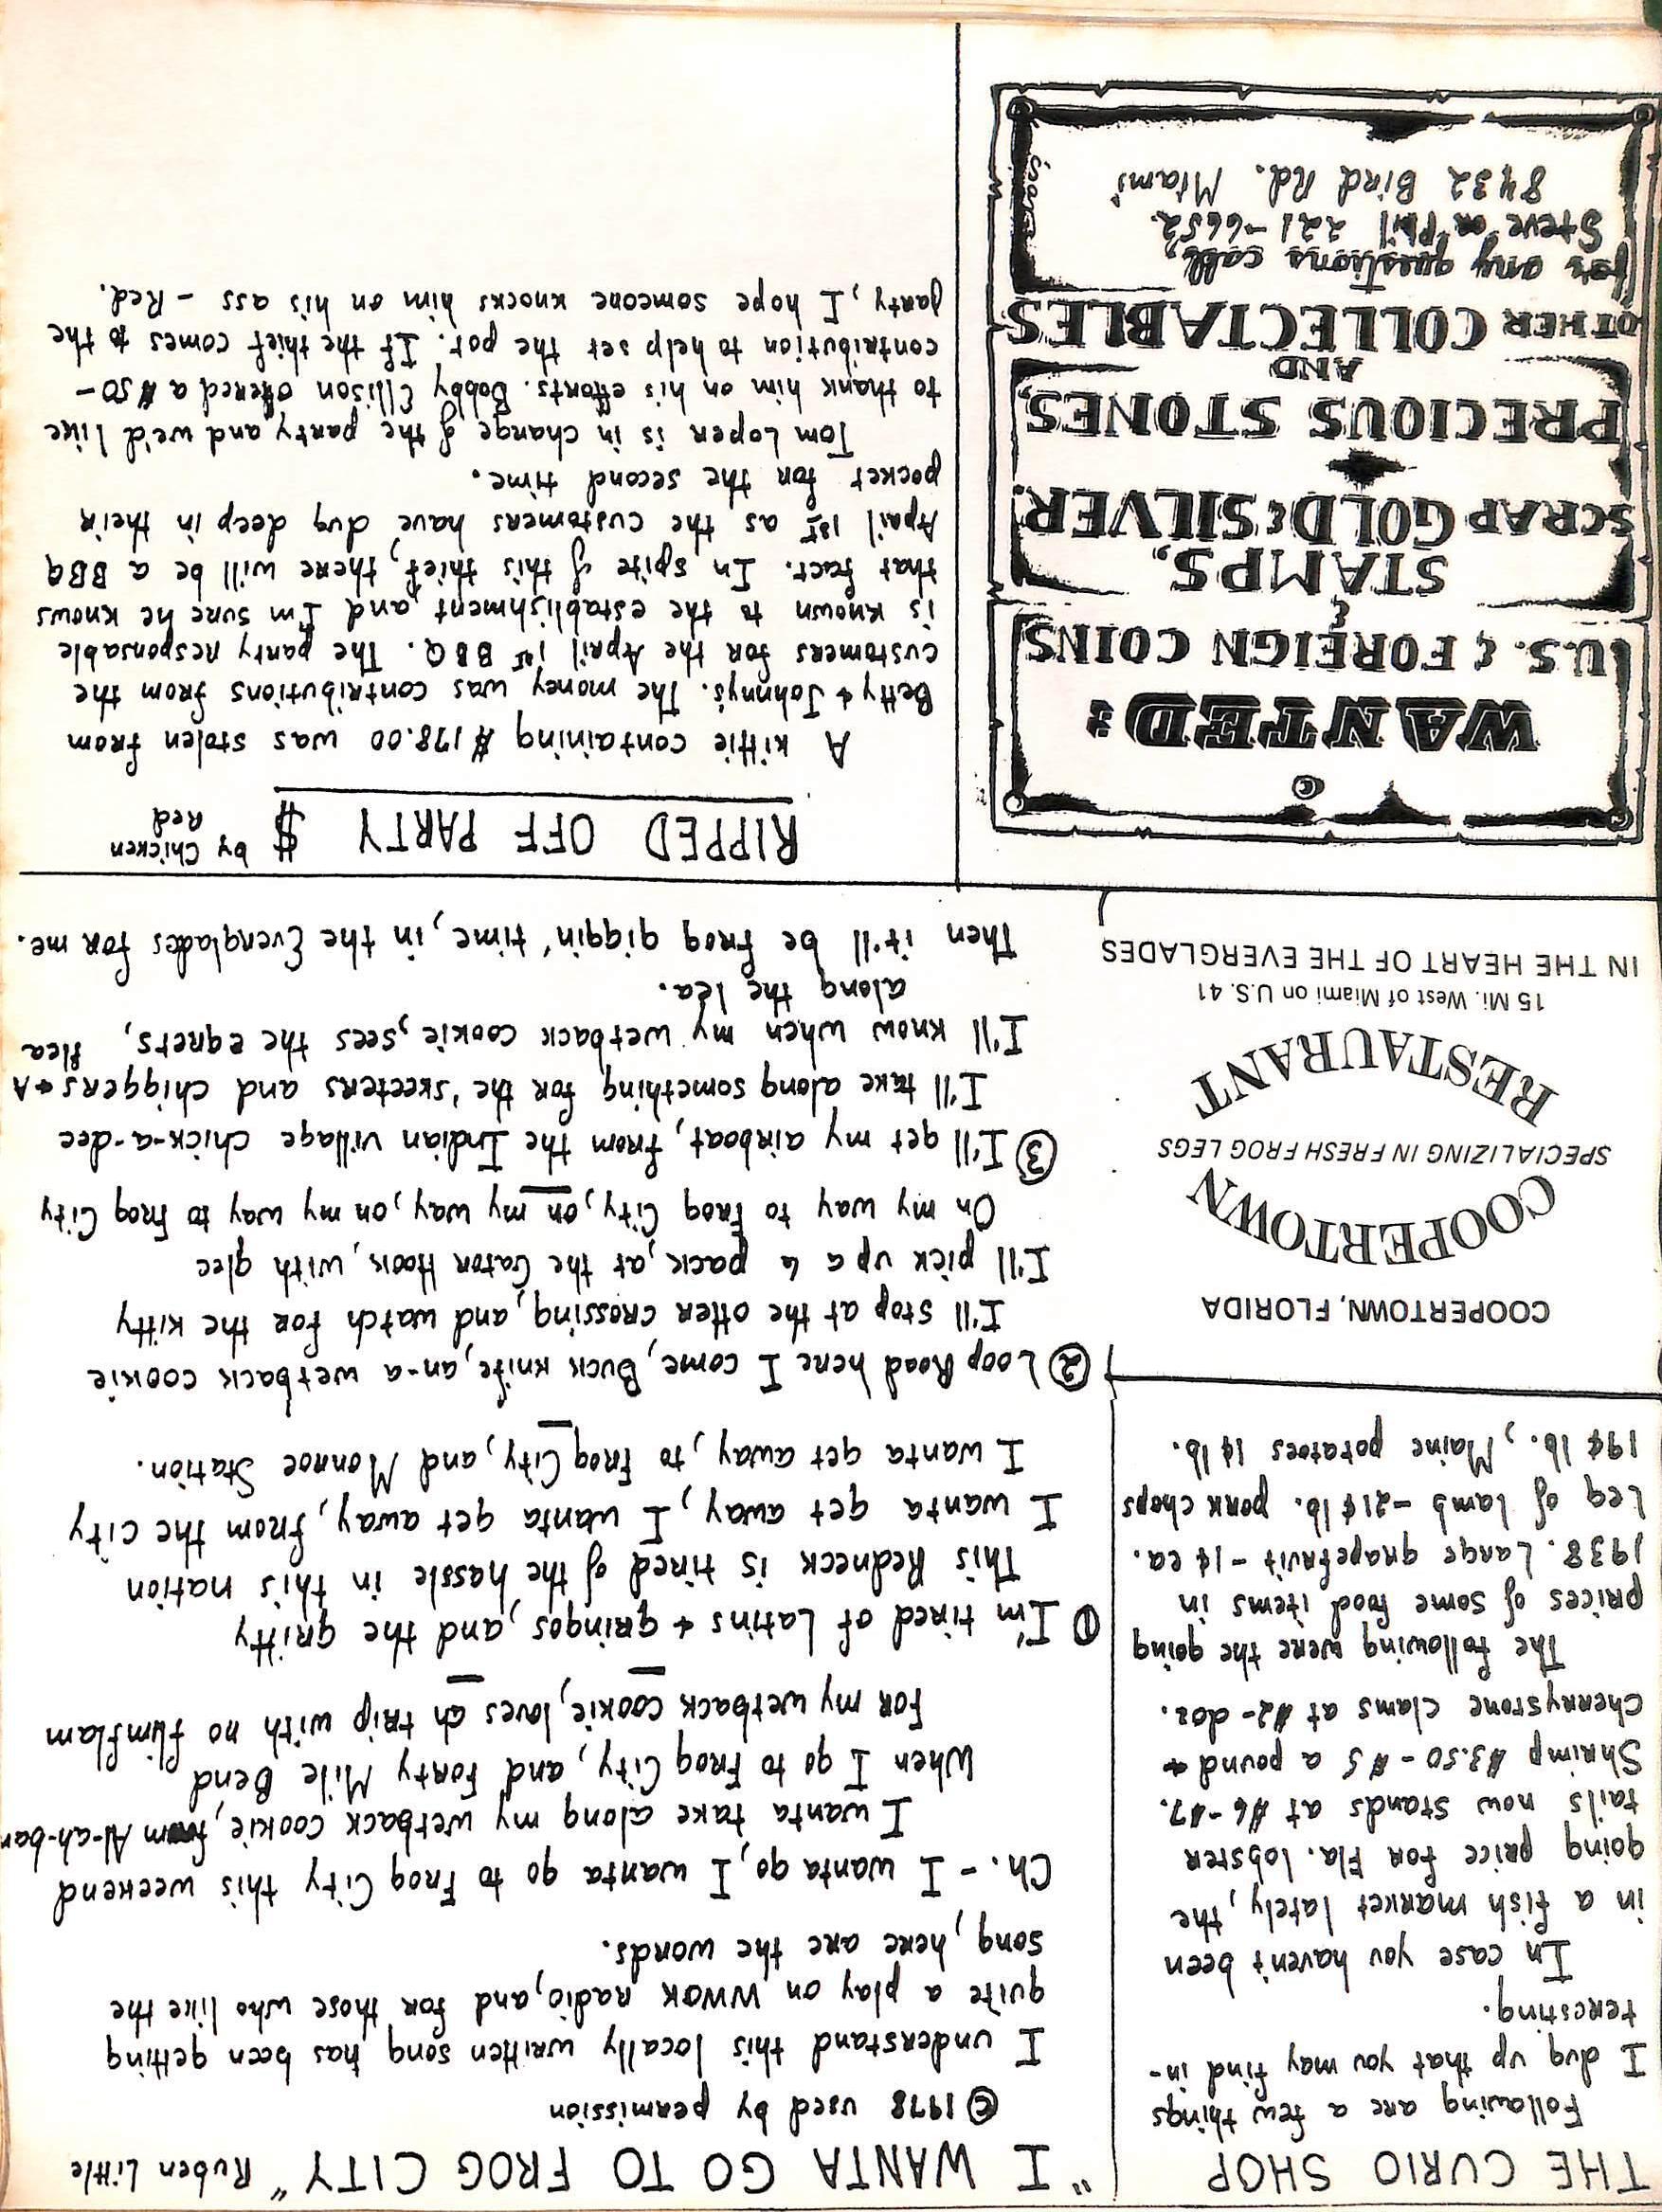 THE CURIO SHOP
Following are a few things
I dug up that you may find in-
teresting.
In case you haven't been
in a fish market lately, the
going price for Fla. lobster
tails now stands at $6-$7.
Shrimp $3.50 - $5 a pound +
Cherrystone clams at $2-doz.
The following were the going
prices of some food items in
1938. Large grapefruit - 1¢ ea.
Leg of lamb - 21¢ lb. pork chops
19¢ lb., Maine potatoes 1¢ lb.
COOPERTOWN, FLORIDA
COOPERTOWN
SPECIALIZING IN FRESH FROG LEGS
RESTAURANT
15 Mi. West of Miami on U.S. 41
IN THE HEART OF THE EVERGLADES
"I WANTA GO TO FROG CITY" Ruben Little
©1978 used by permission
I understand this locally written song has been getting
quite a play on WWOK radio, and for those who like the
song, here are the words.
Ch. - I wanta go, I wanta go to Frog City this weekend
I wanta take along my wetback cookie, from Al-ah-bam
When I go to Frog City, and Forty Mile Bend
For my wetback cookie, loves ah trip with no flimflam
① I'm tired of Latins + gringos, and the gritty
This Redneck is tired of the hassle in this nation
I wanta get away, I wanta get away, from the city
I wanta get away, to Frog City, and Monroe Station.
② Loop Road here I come, Buck knife, an-a wetback cookie
I'll stop at the otter crossing, and watch for the kitty
I'll pick up a 6 pack, at the Gator Hook, with glee
On my way to Frog City, on my way, on my way to Frog City
③ I'll get my airboat, from the Indian village chick-a-dee
I'll take along something for the 'skeeters and chiggers + A flea
I'll know when my wetback cookie, sees the egrets,
along the lea.
Then it'll be frog giggin' time, in the Everglades for me.
WANTED:
U.S. & FOREIGN COINS
&
STAMPS,
SCRAP GOLD & SILVER.
PRECIOUS STONES,
AND
OTHER COLLECTABLES
for any questions call;
Steve or Phil 221-6652
8432 Bird Rd. Miami
RIPPED OFF PARTY $ by Chicken Red
A kittie containing $178.00 was stolen from
Betty + Johnny's. The money was contributions from the
customers for the April 1st BBQ. The party responsable
is known to the establishment and I'm sure he knows
that fact. In spite of this thief, there will be a BBQ
April 1st as the customers have dug deep in their
pocket for the second time.
Tom Loper is in charge of the party and we'd like
to thank him on his efforts. Bobby Ellison offered a $50-
contribution to help set the pot. If the thief comes to the
party, I hope someone knocks him on his ass - Red.